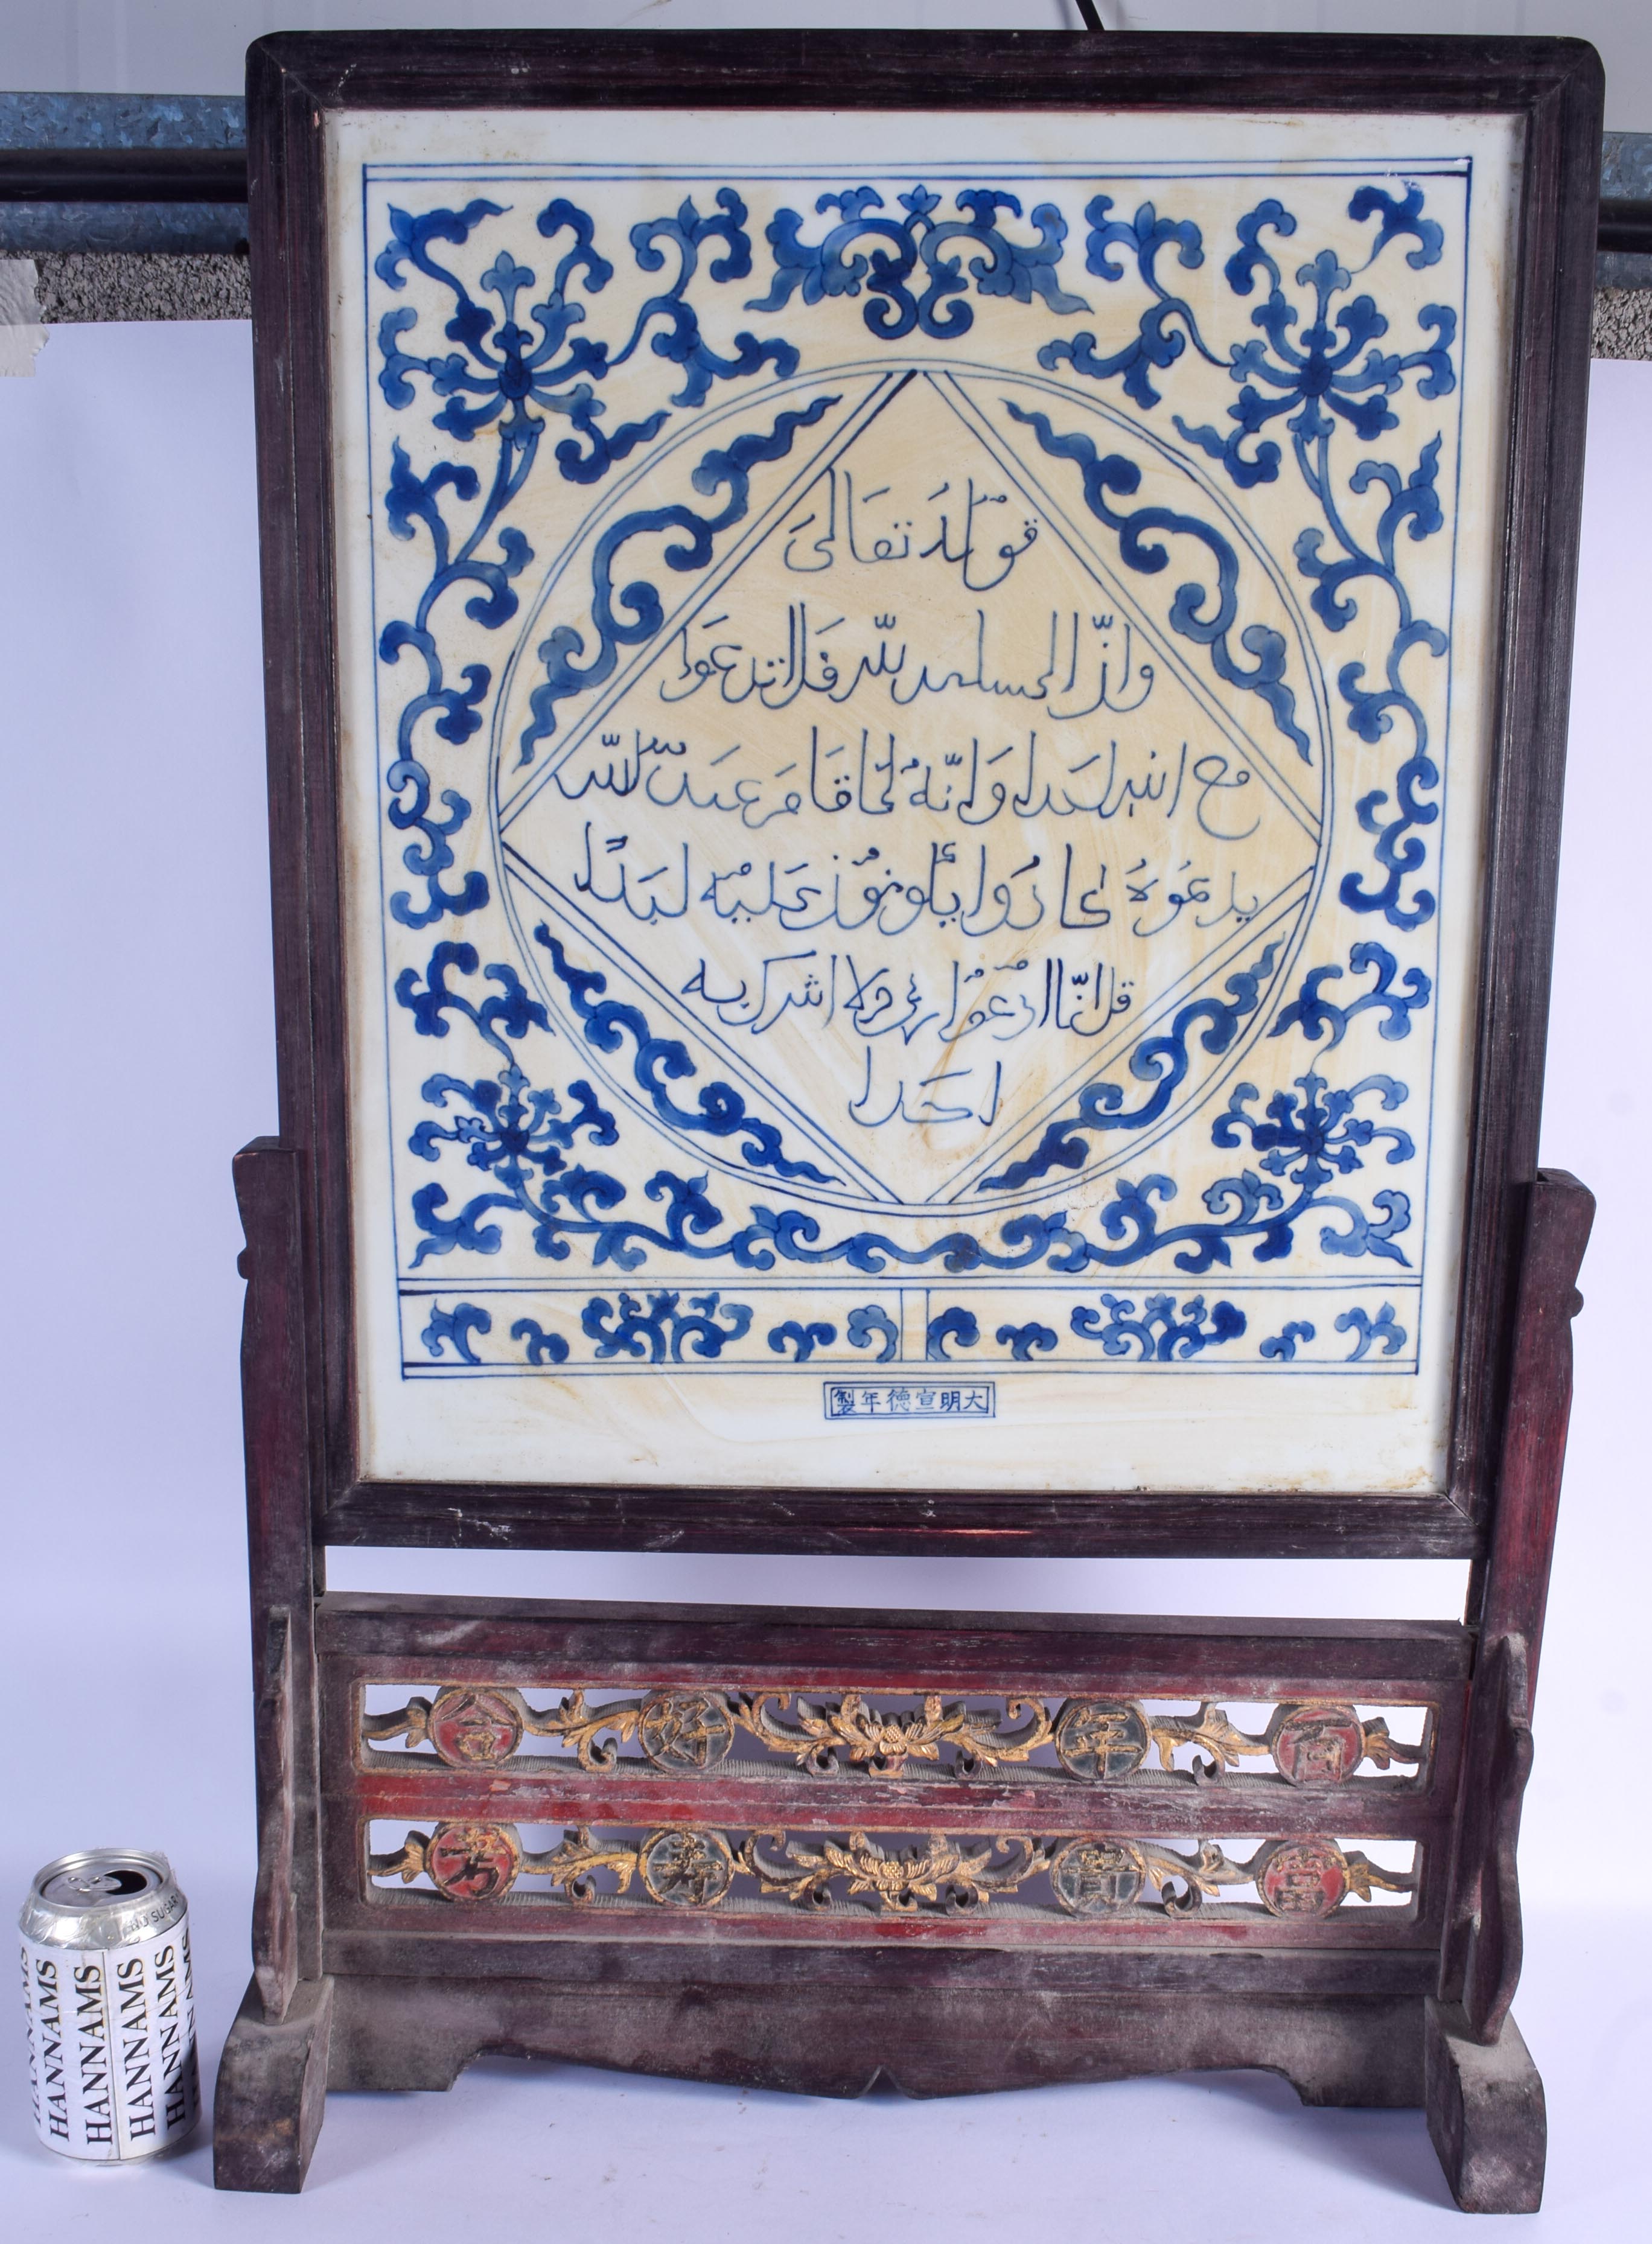 قوله تعالى
وان المسجد لله فلا تدعوا
مع الله احدا وانه لما قام عبد الله
يدعوه كادوا يكونون عليه لبدا
قل انما ادعوا ربي ولا اشرك به
احدا
大明宣德年製
百年好合
富貴壽
NO SUGAR
HANNAMS
HANNAMS
HANNAMS
HANNAMS
HANNAMS